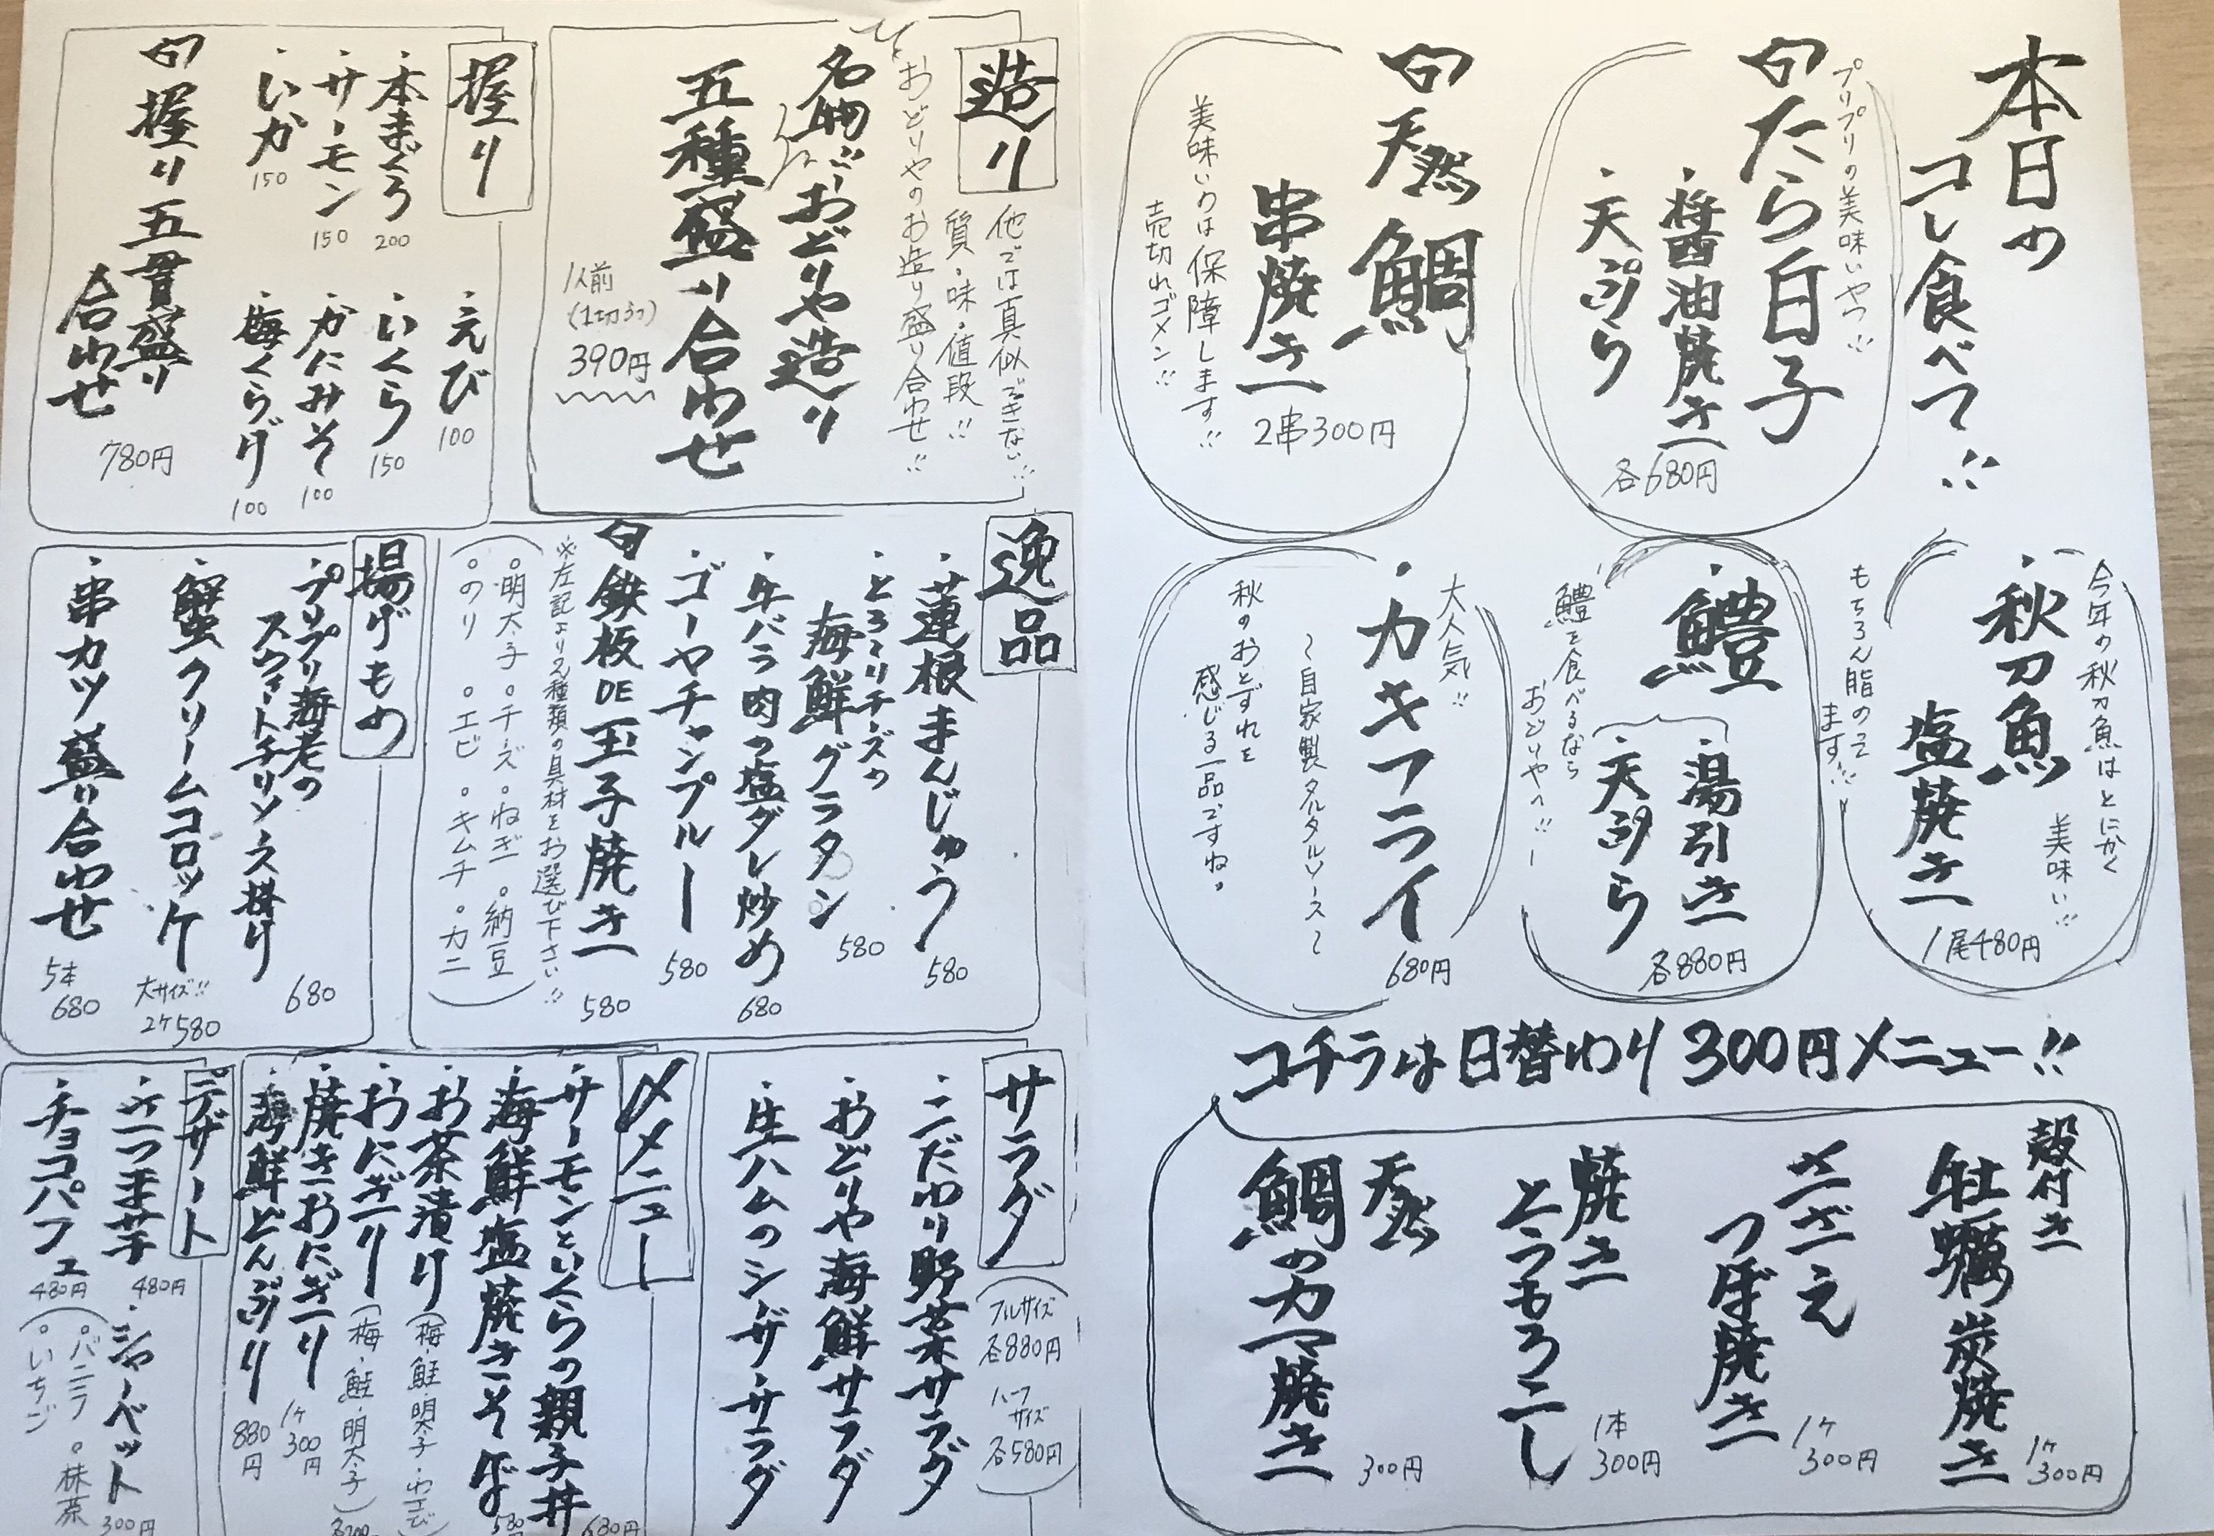 本日の
コレ食べて!!
プリプリの美味いやつ!!
旬 たら白子
・醤油焼き
・天ぷら
各680円
旬 天然 鯛
串焼き
2串300円
美味いのは保障します!!
売切れゴメン!!
今年の秋刀魚はとにかく
美味い!!
・秋刀魚
塩焼き
1尾480円
もちろん脂のって
ます!!
・鱧
・湯引き
・天ぷら
各880円
鱧を食べるなら
おどりやへ!!
大人気!!
・カキフライ
680円
〜自家製タルタルソース〜
秋のおとずれを
感じる一品ですね。
コチラは日替わり300円メニュー!!
殻付き
牡蠣炭焼き
1ケ
300円
さざえ
つぼ焼き
1ケ
300円
焼き
とうもろこし
1本
300円
天然
鯛のカマ焼き
300円
造り
他では真似できない!!
質・味・値段!!
おどりやのお造り盛り合わせ!!
名物!!おどりや造り
五種盛り合わせ
1人前
(1切ずつ)
390円
握り
・本まぐろ
200
・サーモン
150
・いか
150
・えび
100
・いくら
150
・かにみそ
100
・梅くらげ
100
旬 握り五貫盛り
合わせ
780円
逸品
・蓮根まんじゅう
580
・とろ〜りチーズの
海鮮グラタン
580
・牛バラ肉の塩ダレ炒め
680
・ゴーヤチャンプルー
580
旬 鉄板DE玉子焼き
580
※左記より2種類の具材をお選び下さい!!
。明太子。チーズ。ねぎ。納豆
。のり 。エビ 。キムチ 。カニ
揚げもの
・プリプリ海老の
スウィートチリソース掛け
680
・蟹クリームコロッケ
大サイズ!!
2ケ580
・串カツ盛り合わせ
5本
680
サラダ
フルサイズ
各880円
ハーフ
サイズ
各580円
・こだわり野菜サラダ
・おどりや海鮮サラダ
・生ハムのシーザーサラダ
〆メニュー
・サーモンといくらの親子丼
680円
・海鮮塩焼きそば
580円
・お茶漬け
(梅・鮭・明太子・わさび)
・おにぎり
(梅・鮭・明太子)
・焼きおにぎり
1ケ
300円
・海鮮どんぶり
880
円
デザート
・さつま芋
480円
・シャーベット
300円
・チョコパフェ
480円
。バニラ 。抹茶
。いちご